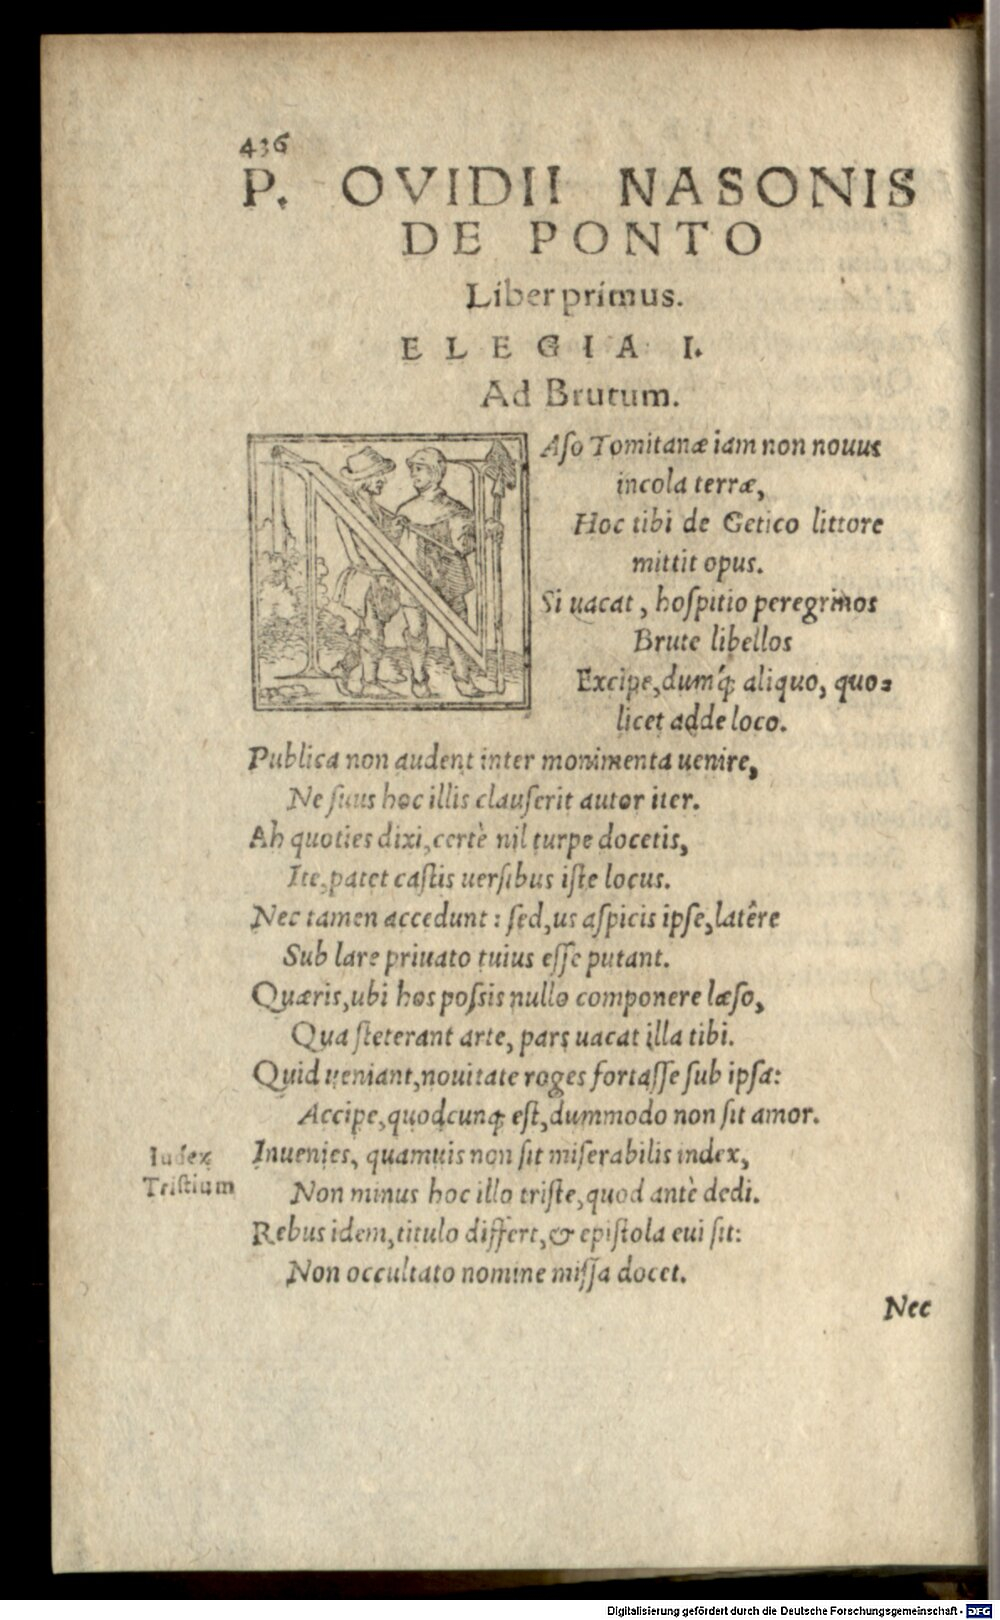 436
P. OVIDII NASONIS
DE PONTO
Liber primus.
ELEGIA I.
Ad Brutum.
NAſo Tomitanæ iam non nouus
incola terræ,
Hoc tibi de Getico littore
mittit opus.
Si uacat, hoſpitio peregrinos
Brute libellos
Excipe, dumq́; aliquo, quo⸗
licet adde loco.
Publica non audent inter monimenta uenire,
Ne ſuus hoc illis clauſerit autor iter.
Ah quoties dixi, certè nil turpe docetis,
Ite, patet caſtis uerſibus iſte locus.
Nec tamen accedunt: ſed, us aſpicis ipſe, latêre
Sub lare priuato tuius eſſe putant.
Quæris, ubi hos poſsis nullo componere læſo,
Qua ſteterant arte, pars uacat illa tibi.
Quid ueniant, nouitate roges fortaſſe ſub ipſa:
Accipe, quodcunq; eſt, dummodo non ſit amor.
Inuenies, quamuis non ſit miſerabilis index,
Non minus hoc illo triſte, quod antè dedi.
Rebus idem, titulo differt, & epiſtola cui ſit:
Non occultato nomine miſſa docet.
Index
Triſtium
Nec
Digitalisierung gefördert durch die Deutsche Forschungsgemeinschaft - DFG